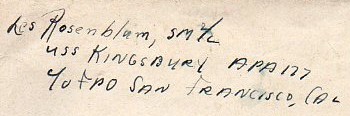 Les Rosenblum, SM 1/2
USS KINGSBURY APA177
c/o FPO SAN FRANCISCO, CAL